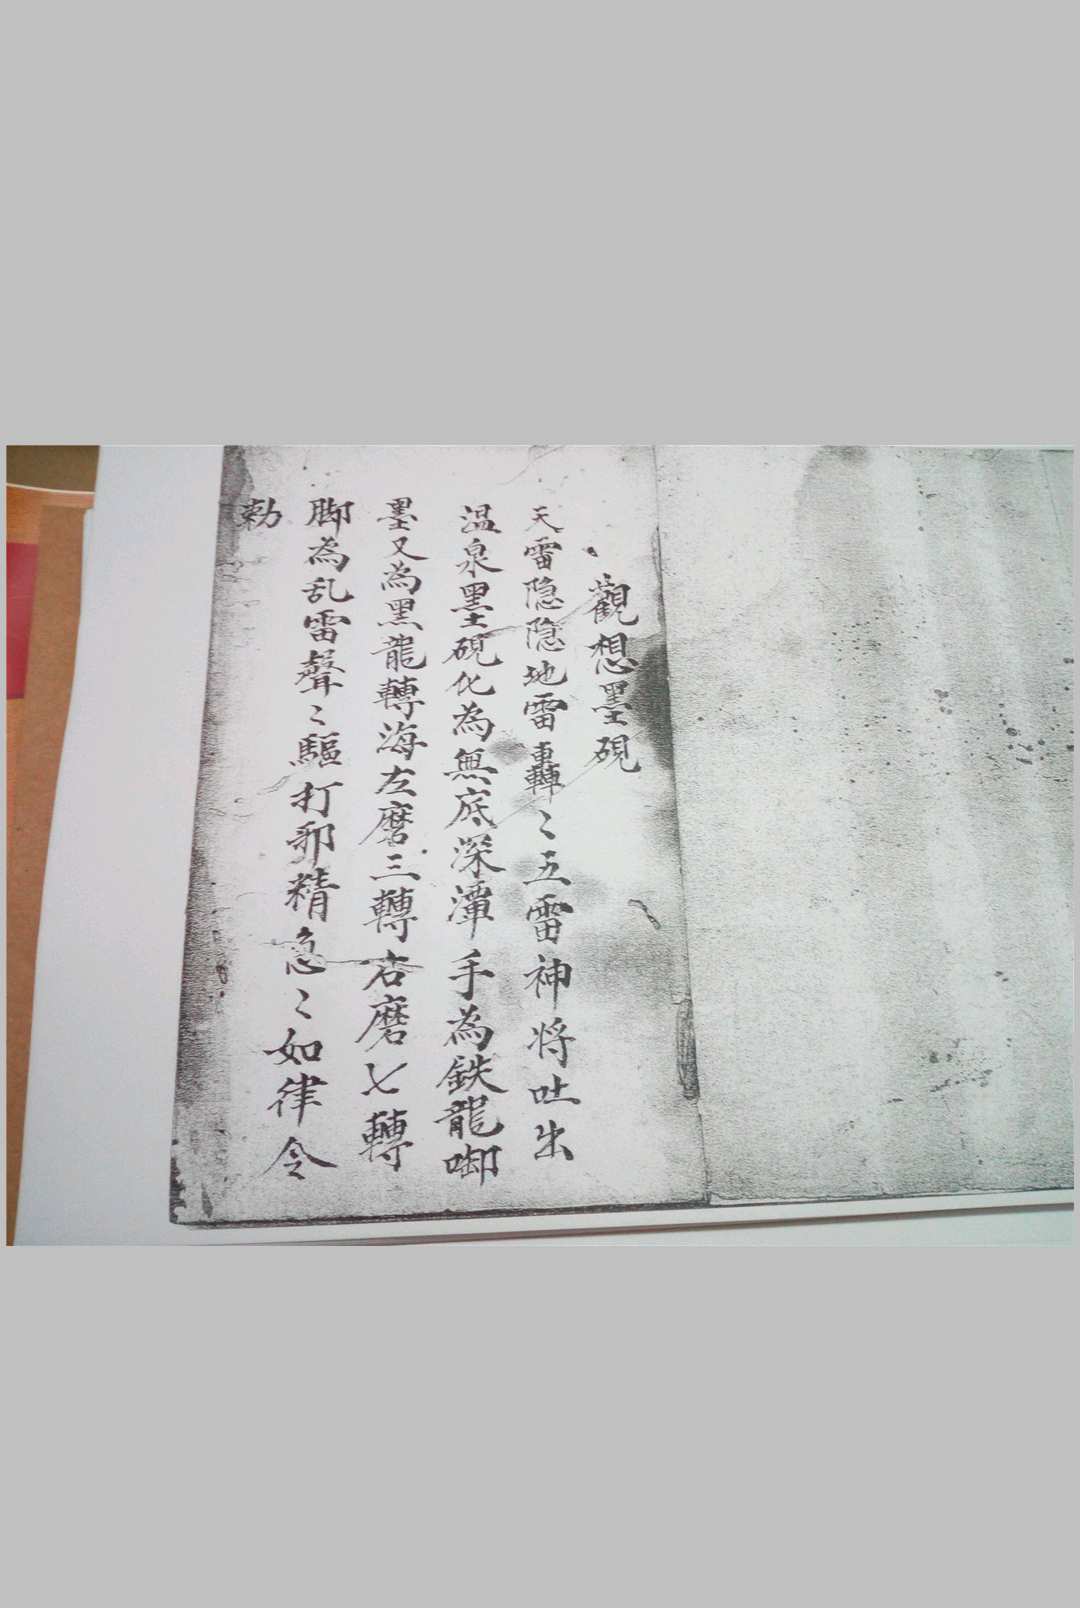 觀想墨硯
天雷隐隐地雷轟〻五雷神将吐出
温泉墨硯化為無底深潭手為鉄龍啣
墨又為黑龍轉海左磨三轉右磨七轉
脚為乱雷聲〻驅打邪精急〻如律令
勅